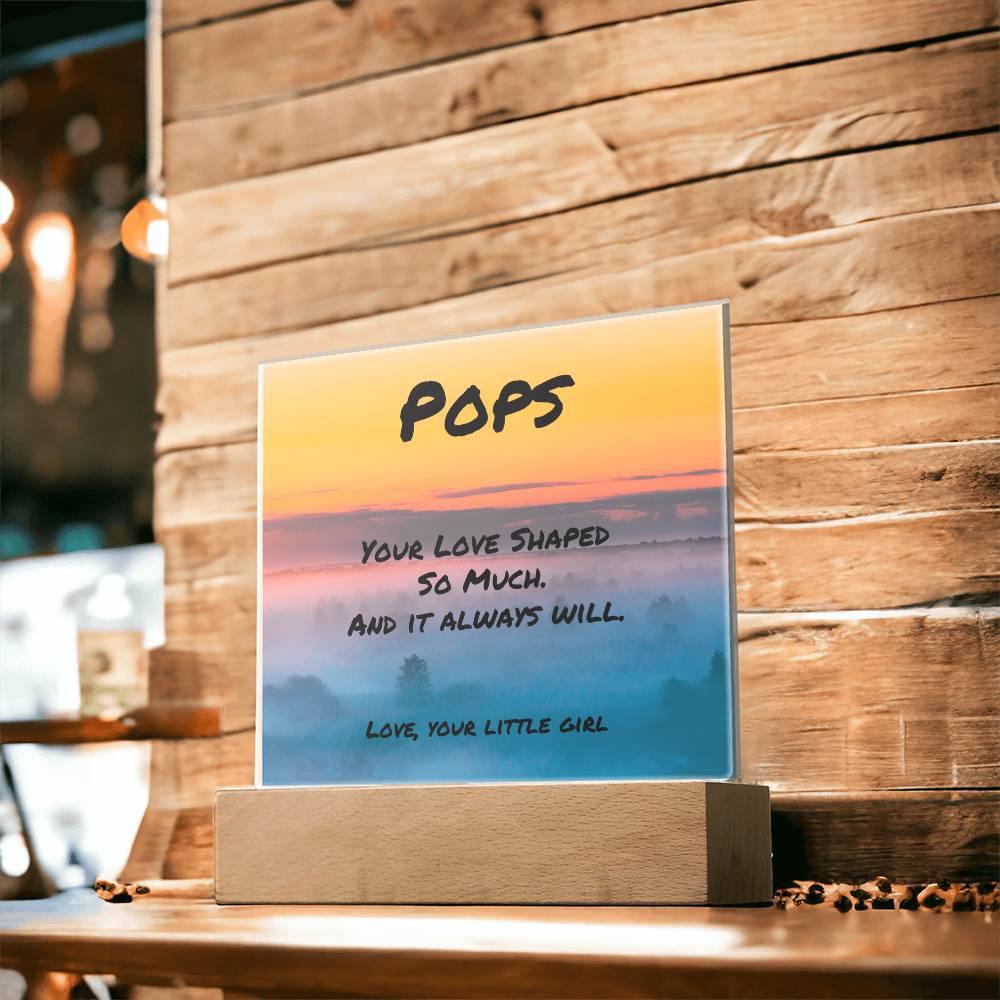 Pops
Your Love Shaped
So Much.
And it always will.
Love, your little girl